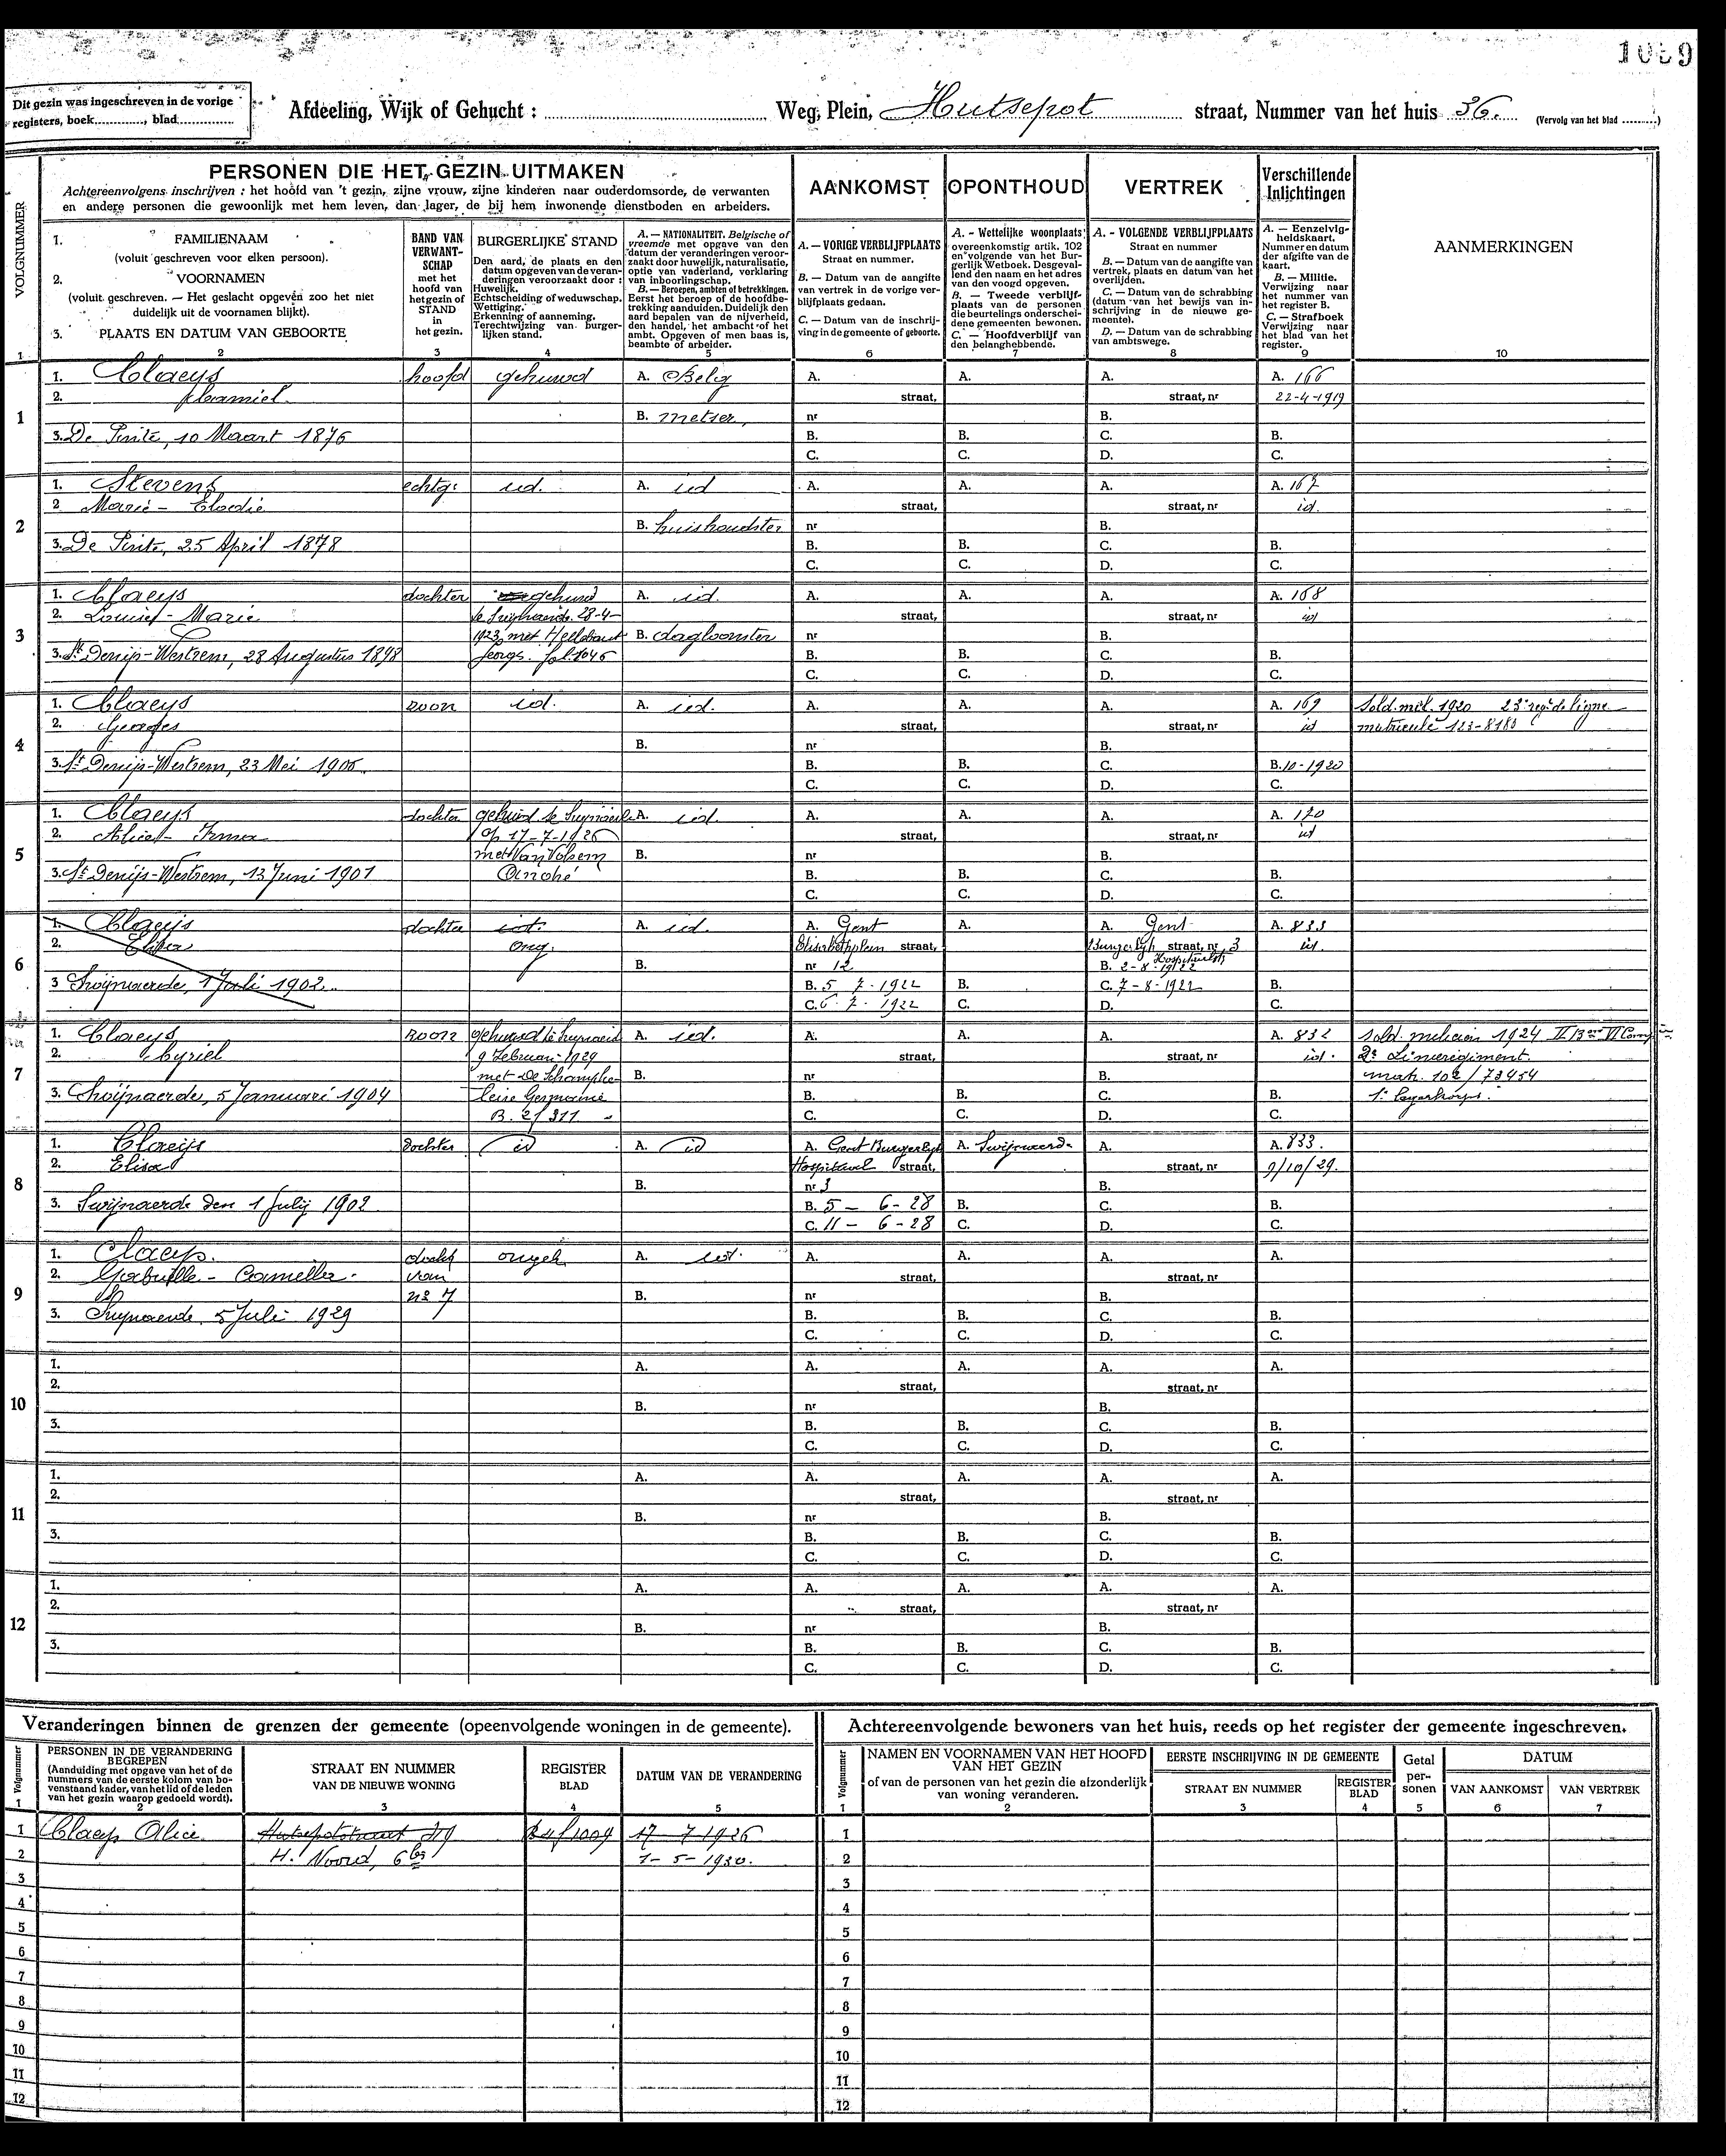 1059
Dit gezin was ingeschreven in de vorige
registers, boek.........., blad..............
Afdeeling, Wijk of Gehucht : ........ Weg, Plein, Hutsepot straat, Nummer van het huis 36. (Vervolg van het blad .........)
PERSONEN DIE HET GEZIN UITMAKEN
Achtereenvolgens inschrijven : het hoofd van 't gezin, zijne vrouw, zijne kinderen naar ouderdomsorde, de verwanten
en andere personen die gewoonlijk met hem leven, dan lager, de bij hem inwonende dienstboden en arbeiders.
AANKOMST OPONTHOUD VERTREK Verschillende Inlichtingen
VOLGNUMMER
1. FAMILIENAAM
(voluit geschreven voor elken persoon).
2. VOORNAMEN
(voluit geschreven. — Het geslacht opgeven zoo het niet
duidelijk uit de voornamen blijkt).
3. PLAATS EN DATUM VAN GEBOORTE
BAND VAN
VERWANT-
SCHAP
met het
hoofd van
het gezin of
STAND
in
het gezin.
BURGERLIJKE STAND
Den aard, de plaats en den
datum opgeven van de veran-
deringen veroorzaakt door :
Huwelijk.
Echtscheiding of weduwschap.
Wettiging.
Erkenning of aanneming.
Terechtwijzing van burger-
lijken stand.
A. — NATIONALITEIT. Belgische of
vreemde met opgave van den
datum der veranderingen veroor-
zaakt door huwelijk, naturalisatie,
optie van vaderland, verklaring
van inboorlingschap.
B. — Beroepen, ambten of betrekkingen.
Eerst het beroep of de hoofdbe-
trekking aanduiden. Duidelijk den
aard bepalen van de nijverheid,
den handel, het ambacht of het
ambt. Opgeven of men baas is,
beambte of arbeider.
A. — VORIGE VERBLIJFPLAATS
Straat en nummer.
B. — Datum van de aangifte
van vertrek in de vorige ver-
blijfplaats gedaan.
C. — Datum van de inschrij-
ving in de gemeente of geboorte.
A. - Wettelijke woonplaats
overeenkomstig artik. 102
en volgende van het Bur-
gerlijk Wetboek. Desgeval-
lend den naam en het adres
van den voogd opgeven.
B. — Tweede verblijf-
plaats van de personen
die beurtelings onderschei-
dene gemeenten bewonen.
C. — Hoofdverblijf van
den belanghebbende.
A. - VOLGENDE VERBLIJFPLAATS
Straat en nummer
B. — Datum van de aangifte van
vertrek, plaats en datum van het
overlijden.
C. — Datum van de schrabbing
(datum van het bewijs van in-
schrijving in de nieuwe ge-
meente).
D. — Datum van de schrabbing
van ambtswege.
A. — Eenzelvig-
heidskaart.
Nummer en datum
der afgifte van de
kaart.
B. — Militie.
Verwijzing naar
het nummer van
het register B.
C. — Strafboek
Verwijzing naar
het blad van het
register.
AANMERKINGEN
1 2 3 4 5 6 7 8 9 10
1
1. Claeys hoofd gehuwd A. Belg A. A. A. A. 166
2. Camiel straat, straat, nr 22-4-1919
B. metser, nr B.
3. De Pinte, 10 Maart 1876 B. B. C. B.
C. C. D. C.
2
1. Stevens echtg: id. A. id A. A. A. A. 167
2 Marie - Elodie straat, straat, nr id.
B. huishoudster nr B.
3. De Pinte, 25 April 1878 B. B. C. B.
C. C. D. C.
3
1. Claeys dochter gehuwd A. id. A. A. A. A. 168
2. Louise - Marie 28-4- straat, straat, nr id
1923 met B. dagloonster nr B.
3. St Denijs-Westrem, 28 Augustus 1898 fol. 1046 B. B. C. B.
C. C. D. C.
4
1. Claeys zoon id. A. id. A. A. A. A. 169 Sold. mil. 1920 23e reg. de ligne
2. Georges straat, straat, nr id matricule 123-8183
B. nr B.
3. St Denijs-Westrem, 23 Mei 1900. B. B. C. B. 10-1920
C. C. D. C.
5
1. Claeys dochter gehuwd te A. id. A. A. A. A. 170
2. Alice - Irma op 17-7-1926 straat, straat, nr id
met Van Volsem B. nr B.
3. St Denijs-Westrem, 13 Juni 1901 André B. B. C. B.
C. C. D. C.
6
1. Claeys dochter id. A. id. A. Gent A. A. Gent A. 833
2. Elisa ong. Elisabethplein straat, Burgerlijk straat, nr 3 id.
Hospitaalstr
B. nr 12 B. 2-8-1922
3 Swijnaerde, 1 Juli 1902. B. 5 7-1922 B. C. 7-8-1922 B.
C. 6-7-1922 C. D. C.
7
1. Claeys zoon gehuwd te A. id. A. A. A. A. 832 Sold. milicien 1924
2. Cyriel 9 Februari 1929 straat, straat, nr id. 2e Linieregiment.
met De Schamphe- B. nr B. matr. 102/73454
3. Swijnaerde, 5 Januari 1904 leire Germaine B. B. C. B. 1e Legerkorps.
B. 2/311 C. C. D. C.
8
1. Claeys dochter id A. id A. Gent Burgerlijk A. Swijnaerde A. A. 833.
2. Elisa Hospitaal straat, straat, nr 9/10/29.
B. nr 3 B.
3. Swijnaerde den 1 July 1902 B. 5 - 6-28 B. C. B.
C. 11 - 6-28 C. D. C.
9
1. Claeys. docht ongeh. A. id. A. A. A. A.
2. Gabrielle - Camella. van straat, straat, nr
nr 7 B. nr B.
3. Swijnaerde, 5 Juli 1929 B. B. C. B.
C. C. D. C.
10
1. A. A. A. A. A.
2. straat, straat, nr
B. nr B.
3. B. B. C. B.
C. C. D. C.
11
1. A. A. A. A. A.
2. straat, straat, nr
B. nr B.
3. B. B. C. B.
C. C. D. C.
12
1. A. A. A. A. A.
2. straat, straat, nr
B. nr B.
3. B. B. C. B.
C. C. D. C.
Veranderingen binnen de grenzen der gemeente (opeenvolgende woningen in de gemeente).
Volgnummer
PERSONEN IN DE VERANDERING
BEGREPEN
(Aanduiding met opgave van het of de
nummers van de eerste kolom van bo-
venstaand kader, van het lid of de leden
van het gezin waarop gedoeld wordt).
STRAAT EN NUMMER
VAN DE NIEUWE WONING
REGISTER
BLAD
DATUM VAN DE VERANDERING
1 2 3 4 5
1 Claeys Alice Hutsepotstraat 17-7-1926
2 H. Noord, 6bis 7-5-1930.
3
4
5
6
7
8
9
10
11
12
Achtereenvolgende bewoners van het huis, reeds op het register der gemeente ingeschreven.
Volgnummer
NAMEN EN VOORNAMEN VAN HET HOOFD
VAN HET GEZIN
of van de personen van het gezin die afzonderlijk
van woning veranderen.
EERSTE INSCHRIJVING IN DE GEMEENTE
STRAAT EN NUMMER
REGISTER
BLAD
Getal
per-
sonen
DATUM
VAN AANKOMST VAN VERTREK
1 2 3 4 5 6 7
1
2
3
4
5
6
7
8
9
10
11
12